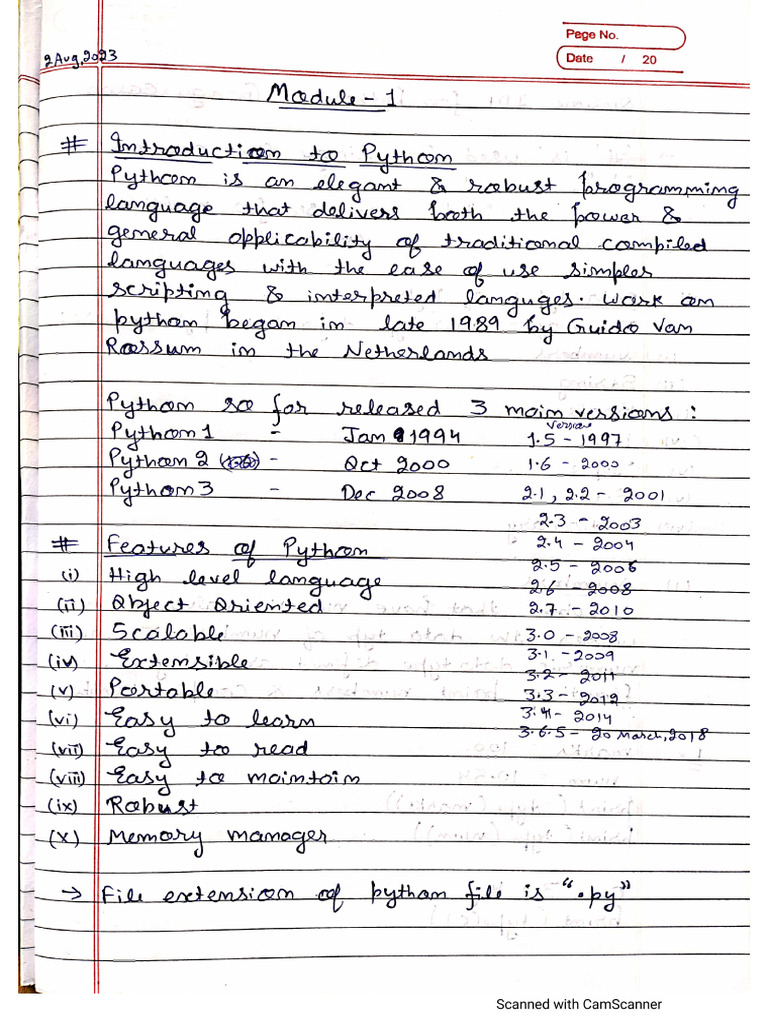 Page No.
Date / 20
2 Aug, 2023
Module - 1
# Introduction to Python
Python is an elegant & robust programming
language that delivers both the power &
general applicability of traditional compiled
languages with the ease of use simpler
scripting & interpreted languges. Work on
python began in late 1989 by Guido Van
Rossum in the Netherlands
Python so far released 3 main versions :
version
Python 1 - Jan 1994 1.5 - 1997
Python 2 - Oct 2000 1.6 - 2000
Python 3 - Dec 2008 2.1, 2.2 - 2001
2.3 - 2003
# Features of Python 2.4 - 2004
2.5 - 2006
(i) High level language 2.6 - 2008
(ii) Object Oriented 2.7 - 2010
(iii) Scalable 3.0 - 2008
(iv) Extensible 3.1 - 2009
3.2 - 2011
(v) Portable 3.3 - 2012
(vi) Easy to learn 3.4 - 2014
3.6.5 - 20 March, 2018
(vii) Easy to read
(viii) Easy to maintain
(ix) Robust
(x) Memory manager
→ File extension of python file is ".py"
Scanned with CamScanner